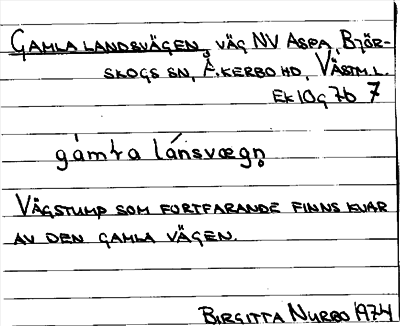 GAMLA LANDSVÄGEN, VÄG NV ASPA, BJÖR-
SKOGS SN, Å.KERBO HD, VÄSTM.L.
EK 10g 7b 7
gám𝗍a lánsvægn̥
VÄGSTUMP SOM FORTFARANDE FINNS KVAR
AV DEN GAMLA VÄGEN.
BIRGITTA NURBO 1974